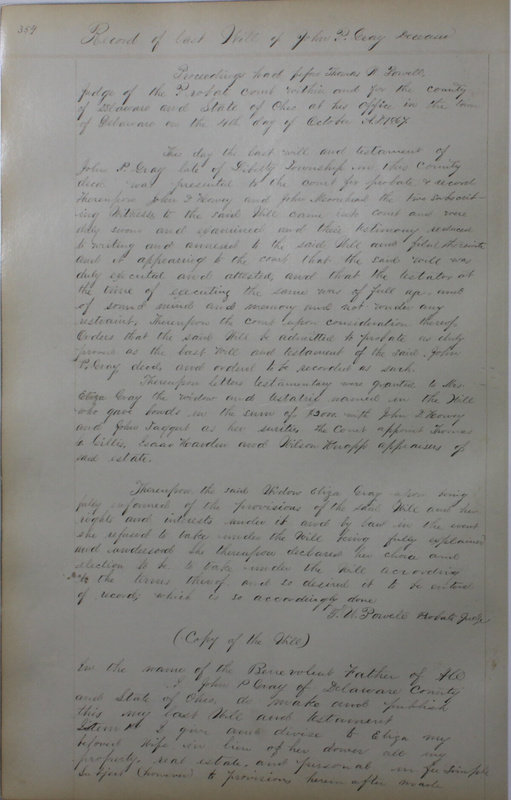 389
Record of Last Will of John P. Gray Deceased
Proceedings had before Thomas W. Powell
Judge of the Probate court within and for the county
of Delaware and State of Ohio at his office in the town
of Delaware on the 4th day of October A.D 1867
This day the last will and testament of
John P. Gray late of Liberty Township in this County
decd was presented to the court for probate & record
Thereupon John and John Moorehead the two subscrib-
ing witnesses to the said Will came into court and were
duly sworn and examined and their testimony reduced
to writing and annexed to the said Will and filed
and it appearing to the court that the said will was
duly executed and attested, and that the testator at
the time of executing the same was of full age and
of sound mind and memory and not under any
restraint. Thereupon the court upon consideration thereof
Orders that the said Will be admitted to probate as duly
proved as the last Will and testament of the said John
P. Gray decd, and ordered to be recorded as such
Thereupon letters testamentary were granted to Mrs
Eliza Gray the widow and executrix named in the Will
who gave bonds in the sum of with John
and John Taggart as her sureties the Court appoint Thomas
Gillis, Isaac Hearden and Wilson Knapp appraisers of
said estate.
Thereupon the said Widow Eliza Gray upon being
fully informed of the provisions of the said Will and her
rights and interests under it and by law in the event
she refused to take under the Will being fully explained
and understood she thereupon declared her choice and
election to be to take under the will according
to the terms thereof and so desired it to be entered
of record, which is so accordingly done
T. W. Powell Probate Judge
(Copy of the Will)
In the name of the Benevolent Father of All
I John P Gray of Delaware County
and State of Ohio, do make and publish
this my last Will and testament
Item 1st I give and devise to Eliza my
beloved wife in lieu of her dower all my
property real estate and personal in fee simple
Subject (however) to provisions herein after made